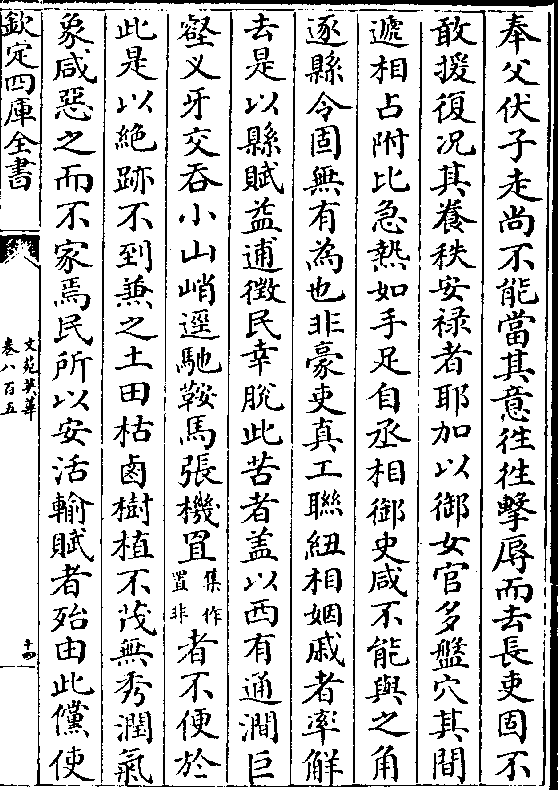 奉父伏子走尚不能當其意徃徃擊辱而去長吏固不
敢援復况其養秩安禄者耶加以御女官多盤穴其間
遞相占附比急熱如手足自丞相御史咸不能與之角
逐縣令固無有為也非豪吏真工聯紐相姻戚者率解
去是以縣賦益逋徴民幸脫此苦者盖以西有通澗巨
壑乂牙交吞小山峭逕馳鞍馬張機罝集作置非者不便於
此是以絶跡不到兼之土田枯鹵樹植不茂無秀潤氣
象咸惡之而不家焉民所以安活輸賦者殆由此儻使
欽定四庫全書
文苑英華
卷八百五
十四